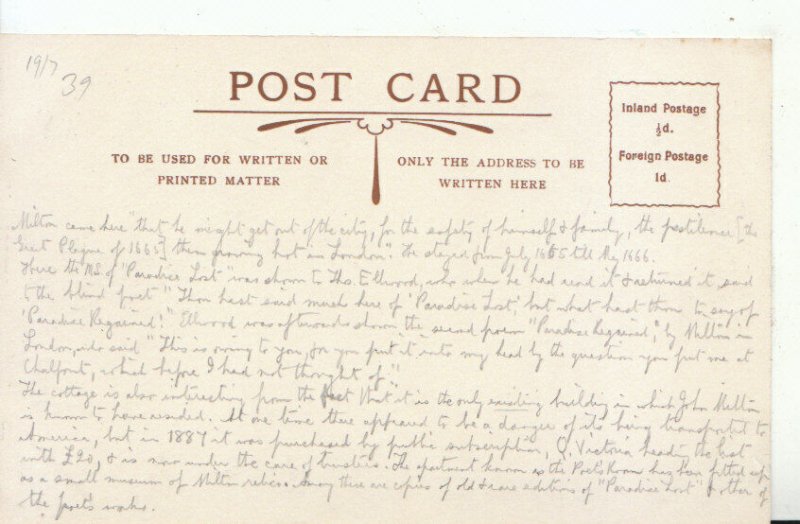 19/7
39
POST CARD
Inland Postage
½d.
Foreign Postage
1d.
TO BE USED FOR WRITTEN OR
PRINTED MATTER
ONLY THE ADDRESS TO BE
WRITTEN HERE
Milton came here "that he might get out of the city, for the safety of himself & family, the pestilence [the
Great Plague of 1665] then growing hot in London". He stayed from July 1665 till May 1666.
Here the MS. of "Paradise Lost" was shown to Thos. Ellwood, who when he had read it & returned it said
to the blind poet "Thou hast said much here of 'Paradise Lost,' but what hast thou to say of
'Paradise Regained'?" Ellwood was afterwards shown the second poem "Paradise Regained", by Milton in
London, who said "This is owing to you, for you put it into my head by the question you put me at
Chalfont, which before I had not thought of."
The cottage is also interesting from the fact that it is the only existing building in which John Milton
is known to have resided. At one time there appeared to be a danger of its being transported to
America, but in 1887 it was purchased by public subscription, Q. Victoria heading the list
with £20, & is now under the care of trustees. The apartment known as the Poet's Room has been fitted up
as a small museum of Milton relics. Among these are copies of old & rare editions of "Paradise Lost" & other of
the poet's works.